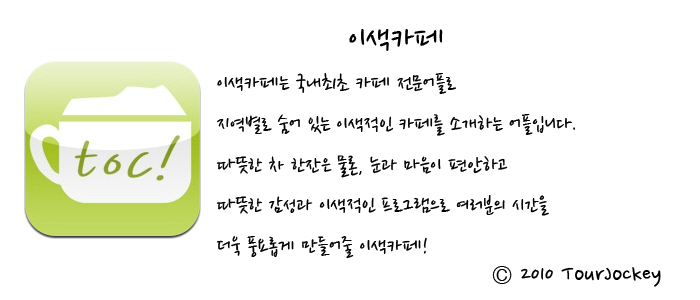 이색카페
이색카페는 국내최초 카페 전문어플로
지역별로 숨어 있는 이색적인 카페를 소개하는 어플입니다.
toc!
따뜻한 차 한잔은 물론, 눈과 마음이 편안하고
따뜻한 감성과 이색적인 프로그램으로 여러분의 시간을
더욱 풍요롭게 만들어줄 이색카페!
© 2010 TourJockey